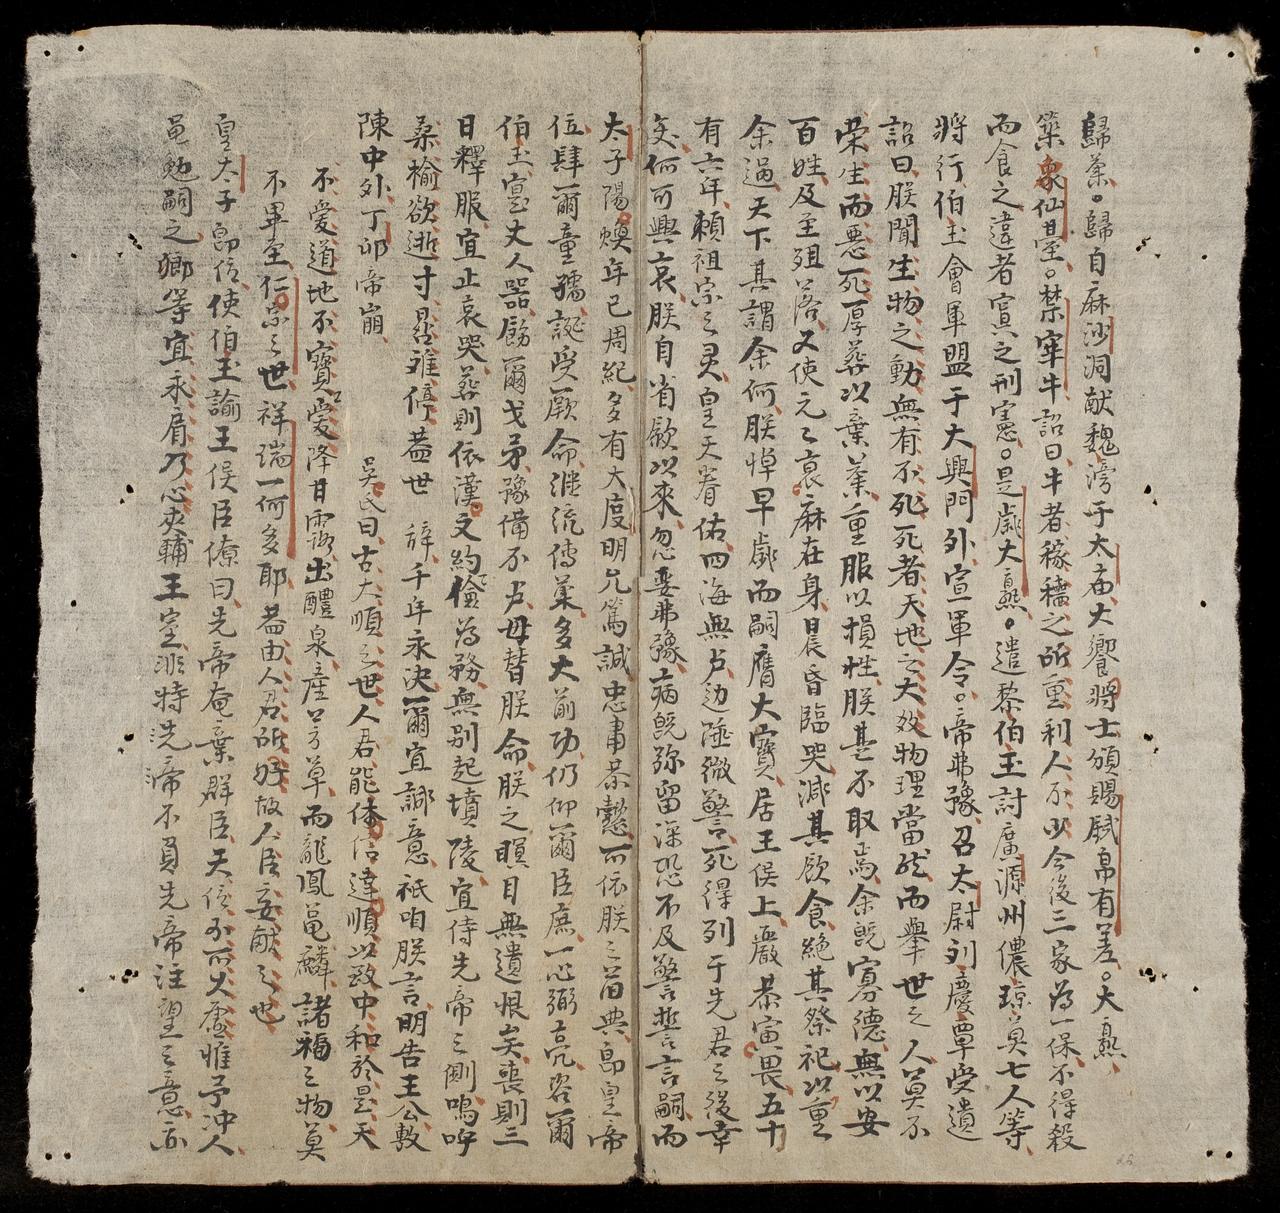 歸藁。歸自麻沙洞献魏滂于太庙大饗將士頒賜賦帛有差。大熹
築象仙臺。禁宰牛詔曰牛者稼穡之所重利人不少今後三家為一保不得殺
而食之違者寘之刑憲。是歲大熹。遣黎伯玉討廣源州儂琼莫七人等
將行伯玉會軍盟于大興門外宣軍令。帝弗豫召太尉列慶覃受遺
詔曰朕聞生物之動無有不死死者天地之大效物理當然而舉世之人莫不
荣生而悪死厚葬以棄業重服以損性朕甚不取焉余既寡德無以安
百姓及至殂落又使元々衰麻在身晨昏臨哭減其飲食絶其祭祀以重
余過天下其謂余何朕悼早歲而嗣膺大寶居王侯上嚴恭寅畏五十
有六年頼祖宗之灵皇天眷佑四海無虞边陲微警死得列于先君之後幸
矣何可興哀朕自省歛以來忽嬰弗豫病既弥留深恐不及警誓言嗣而
太子陽煥年已周紀多有大度明允篤誠忠肅恭懿可依朕之旧典即皇帝
位肆爾童孺誕受厥命継統傳業多大前功仍仰爾臣庶一心弼亮咨爾
伯玉寔丈人器飭爾戈矛豫備不虞毋替朕命朕之瞑目無遺恨矣喪則三
日釋服宜止哀哭葬則依漢文約儉為務無别起墳陵宜侍先帝之側嗚呼
桑榆欲逝寸晷难停蓋世 辞千年永决爾宜諔意祇咱朕言明告王公敷
陳中外丁卯帝崩 吴氏曰古大順之世人君能体信達順以致中和於是天
不愛道地不寶愛降甘露出醴泉産異草而龍鳳黾麟諸福之物莫
不畢至仁宗之世祥瑞一何多耶蓋由人君所好故人臣妄献之也
皇太子即位使伯玉諭王侯臣僚曰先帝奄棄群臣天位不可久虚惟予冲人
黾勉嗣之卿等宜永肩乃心夾輔王室非特先帝不負先帝注望之意而